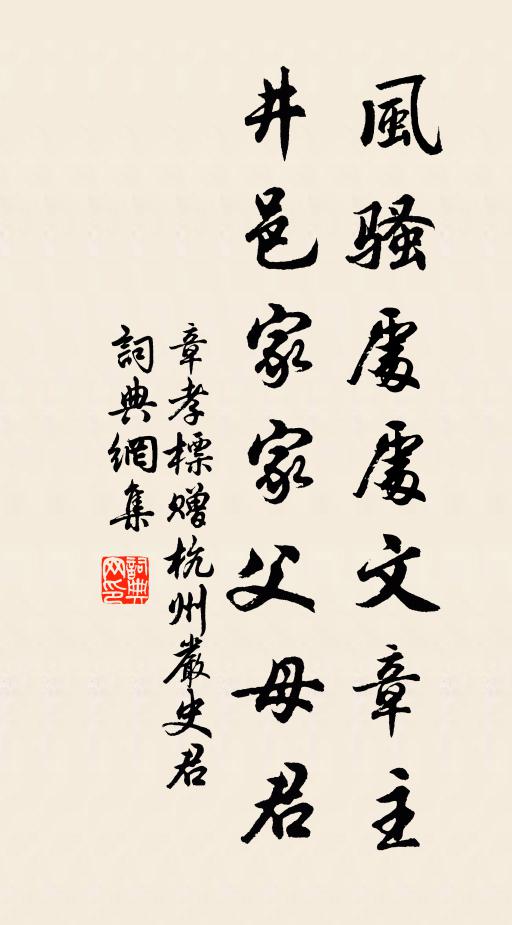 風騷處處文章主
井邑家家父母君
章孝標贈杭州嚴史君
詞典網集
詞典网印